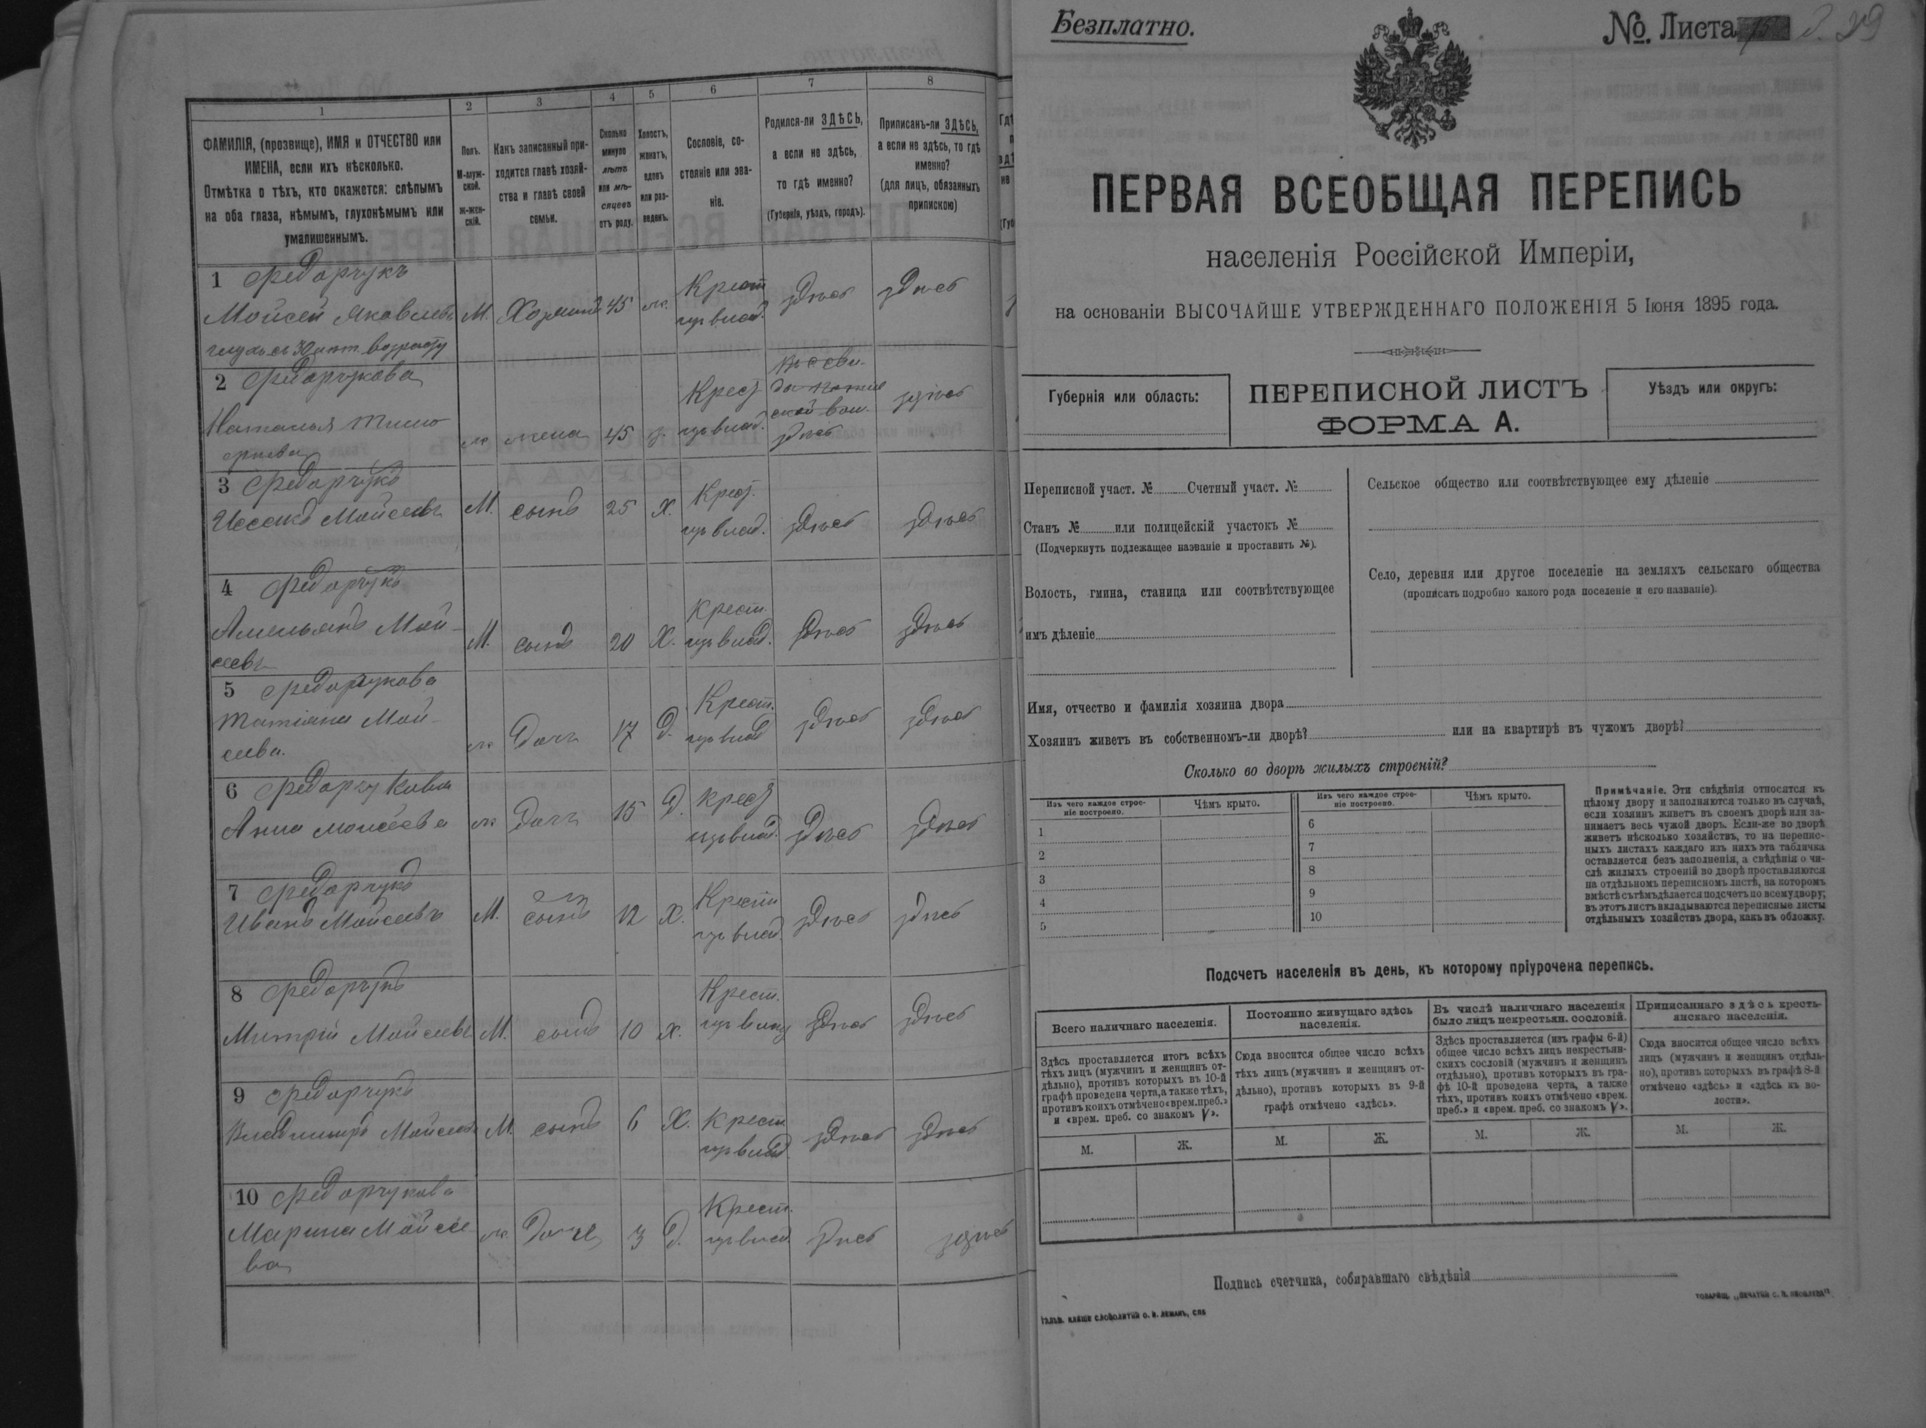 1
2
3
4
5
6
7
8
ФАМИЛІЯ, (прозвище), ИМЯ и ОТЧЕСТВО или
ИМЕНА, если ихъ нѣсколько.
Отмѣтка о тѣхъ, кто окажется: слѣпымъ
на оба глаза, нѣмымъ, глухонѣмымъ или
умалишеннымъ.
Полъ.
М-муж-
ской.
Ж-жен-
скій.
Какъ записанный при-
ходится главѣ хозяй-
ства и главѣ своей
семьи.
Сколько
минуло
лѣтъ
или мѣ-
сяцевъ
отъ роду.
Холостъ,
женатъ,
вдовъ
или раз-
веденъ.
Сословіе, со-
стояніе или зва-
ніе.
Родился-ли ЗДѢСЬ,
а если не здѣсь,
то гдѣ именно?
(Губернія, уѣздъ, городъ).
Приписанъ-ли ЗДѢСЬ,
а если не здѣсь, то гдѣ
именно?
(для лицъ, обязанныхъ
припискою)
1 Федорчукъ
Мойсей Яковлевъ М. Хозяинъ 45 ж. Крест. здѣсь здѣсь
глухъ съ 30 лѣт. возрасту
2 Федорчукова
Наталья жена 45 Крест. здѣсь здѣсь
3 Федорчукъ
Мойсеевъ М. сынъ 25 Х. Крест. здѣсь здѣсь
4 Федорчукъ
Амельянъ Мой-
сеевъ М. сынъ 20 Х. Крест. здѣсь здѣсь
5 Федорчукова
Татіяна Мой-
сеева. ж. дочь 17 д. Крест. здѣсь здѣсь
6 Федорчукова
Анна Моисеева ж. дочь 15 д. Крест. здѣсь здѣсь
7 Федорчукъ
Иванъ Мойсеевъ М. сынъ 12 Х. Крест. здѣсь здѣсь
8 Федорчукъ
Митрій Мойсеевъ М. сынъ 10 х. Крест. здѣсь здѣсь
9 Федорчукъ
Владимиръ Мойсеевъ М. сынъ 6 Х. Крест. здѣсь здѣсь
10 Федорчукова
Марина Мойсее-
ва ж. дочь 3 д. Крест. здѣсь здѣсь
Безплатно.
№. Листа
29
ПЕРВАЯ ВСЕОБЩАЯ ПЕРЕПИСЬ
населенія Россійской Имперіи,
на основаніи ВЫСОЧАЙШЕ УТВЕРЖДЕННАГО ПОЛОЖЕНІЯ 5 Іюня 1895 года.
Губернія или область:
ПЕРЕПИСНОЙ ЛИСТЪ
ФОРМА А.
Уѣздъ или округъ:
Переписной участ. № Счетный участ. №
Станъ № или полицейскій участокъ №
(Подчеркнуть подлежащее названіе и проставить №).
Волость, гмина, станица или соотвѣтствующее
имъ дѣленіе
Сельское общество или соотвѣтствующее ему дѣленіе
Село, деревня или другое поселеніе на земляхъ сельскаго общества
(прописать подробно какого рода поселеніе и его названіе).
Имя, отчество и фамилія хозяина двора
Хозяинъ живетъ въ собственномъ-ли дворѣ? или на квартирѣ въ чужомъ дворѣ?
Сколько во дворѣ жилыхъ строеній?
Изъ чего каждое строе-
ніе построено.
Чѣмъ крыто.
Изъ чего каждое строе-
ніе построено.
Чѣмъ крыто.
1
2
3
4
5
6
7
8
9
10
Примѣчаніе. Эти свѣдѣнія относятся къ
цѣлому двору и заполняются только въ случаѣ,
если хозяинъ живетъ въ своемъ дворѣ или за-
нимаетъ весь чужой дворъ. Если-же во дворѣ
живетъ нѣсколько хозяйствъ, то на перепис-
ныхъ листахъ каждаго изъ нихъ эта табличка
оставляется безъ заполненія, а свѣдѣнія о чи-
слѣ жилыхъ строеній во дворѣ проставляются
на отдѣльномъ переписномъ листѣ, на которомъ
вмѣстѣ съ тѣмъ дѣлается подсчетъ по всему двору;
въ этотъ листъ вкладываются переписные листы
отдѣльныхъ хозяйствъ двора, какъ въ обложку.
Подсчетъ населенія въ день, къ которому пріурочена перепись.
Всего наличнаго населенія.
Постоянно живущаго здѣсь
населенія.
Въ числѣ наличнаго населенія
было лицъ некрестьян. сословій.
Приписаннаго здѣсь кресть-
янскаго населенія.
Здѣсь проставляется итогъ всѣхъ
тѣхъ лицъ (мужчинъ и женщинъ от-
дѣльно), противъ которыхъ въ 10-й
графѣ проведена черта, а также тѣхъ,
противъ коихъ отмѣчено «врем. преб.»
и «врем. преб. со знакомъ V».
Сюда вносится общее число всѣхъ
тѣхъ лицъ (мужчинъ и женщинъ от-
дѣльно), противъ которыхъ въ 9-й
графѣ отмѣчено «здѣсь».
Здѣсь проставляется (изъ графы 6-й)
общее число всѣхъ лицъ некрестьян-
скихъ сословій (мужчинъ и женщинъ
отдѣльно), противъ которыхъ въ гра-
фѣ 10-й проведена черта, а также
тѣхъ, противъ коихъ отмѣчено «врем.
преб.» и «врем. преб. со знакомъ V».
Сюда вносится общее число всѣхъ
лицъ (мужчинъ и женщинъ отдѣль-
но), противъ которыхъ въ графѣ 8-й
отмѣчено «здѣсь» и «здѣсь къ во-
лости».
М. Ж. М. Ж. М. Ж. М. Ж.
Подпись счетчика, собиравшаго свѣдѣнія